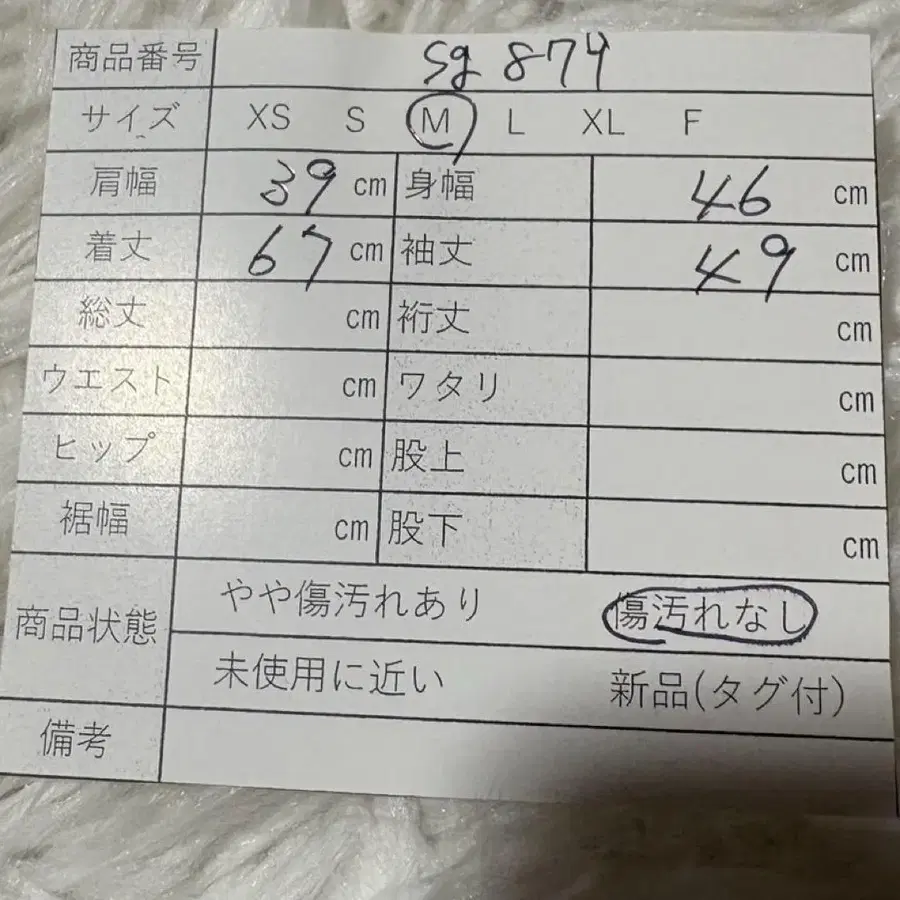 商品番号 sg 874
サイズ XS S M L XL F
肩幅 39 cm 身幅 46 cm
着丈 67 cm 袖丈 49 cm
総丈 cm 裄丈 cm
ウエスト cm ワタリ cm
ヒップ cm 股上 cm
裾幅 cm 股下 cm
商品状態 やや傷汚れあり 傷汚れなし
未使用に近い 新品(タグ付)
備考